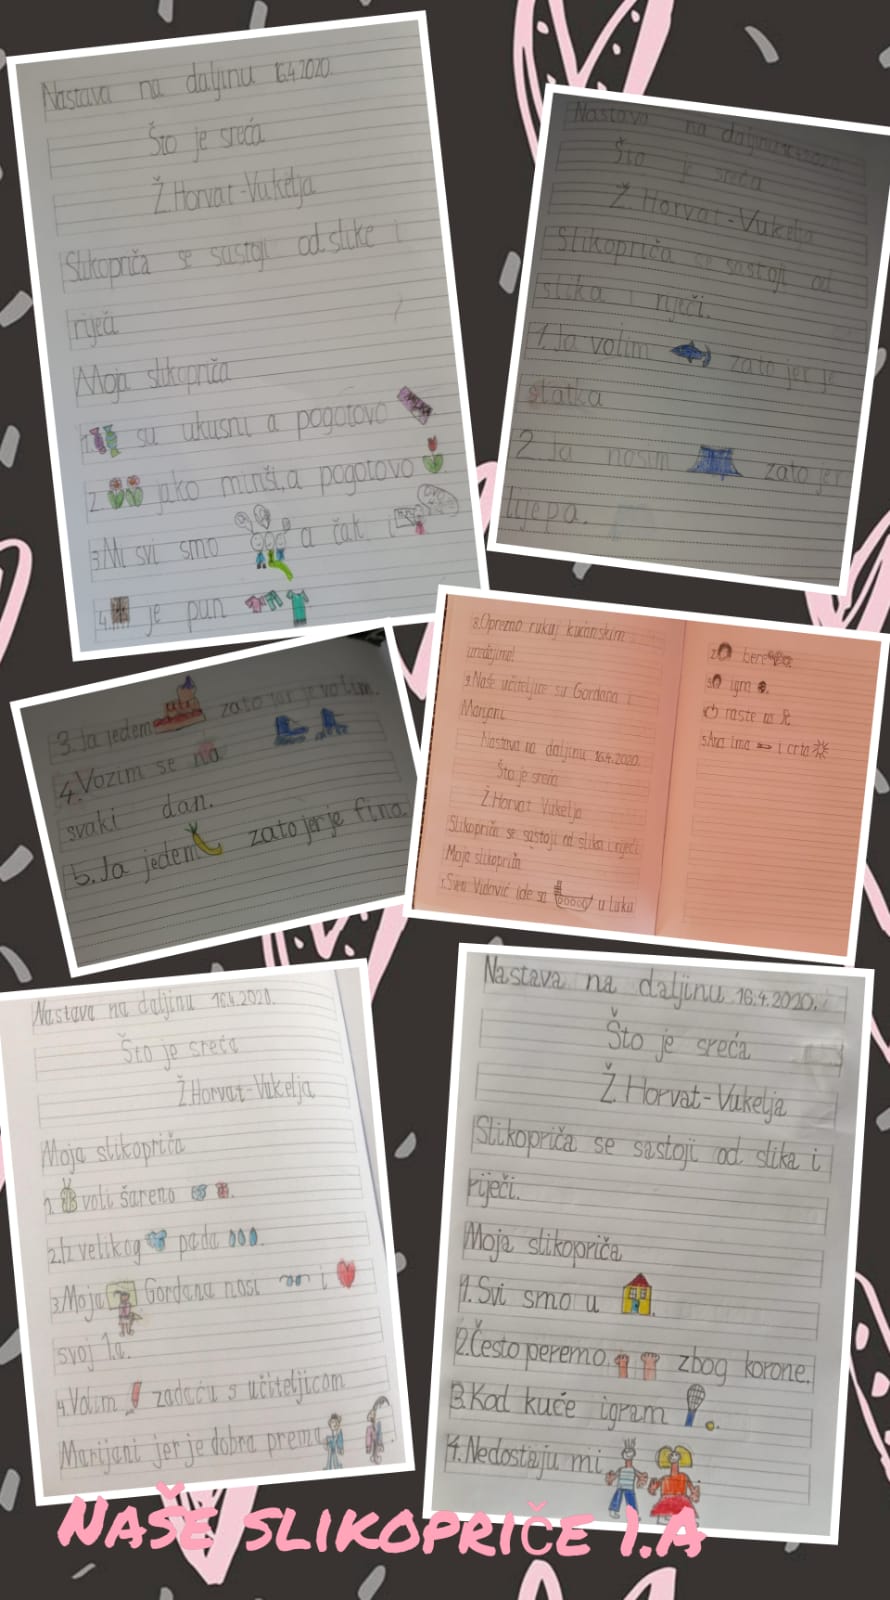 Nastava na daljinu 16.4.2020.
Što je sreća
Ž. Horvat-Vukelja
Slikopriča se sastoji od slike i
riječi
Moja slikopriča
1. su ukusni a pogotovo
2. jako miriši, a pogotovo
3. Mi svi smo a čak i
4. je pun
Nastava na daljinu 16.4.2020.
Što je sreća
Ž. Horvat-Vukelja
Slikopriča se sastoji od
slika i riječi.
1. Ja volim zato jer je
slatka
2. Ja nosim zato jer
lijepa.
3. Ja jedem zato jer je volim.
4. Vozim se na
svaki dan.
5. Ja jedem zato jer je fina.
8. Oprezno rukuj kućanskim
uređajima!
9. Naše učiteljice su Gordana i
Marijani.
Nastava na daljinu 16.4.2020.
Što je sreća
Ž. Horvat Vukelja
Slikopriča se sastoji od slika i riječi
Moja slikopriča
1. Sven Vidović ide sa u luku
2. bere
3. igra
4. raste na
5. Ana ima i crta
Nastava na daljinu 16.4.2020.
Što je sreća
Ž. Horvat-Vukelja
Moja slikopriča
1. voli šareno
2. Iz velikog pada
3. Moja Gordana nosi i
svoj 1.a.
4. Volim zadaću s učiteljicom
Marijani jer je dobra prema
Nastava na daljinu 16.4.2020.
Što je sreća
Ž. Horvat-Vukelja
Slikopriča se sastoji od slika i
riječi.
Moja slikopriča
1. Svi smo u
2. Često peremo zbog korone.
3. Kod kuće igram
4. Nedostaju mi
Naše slikopriče 1.a